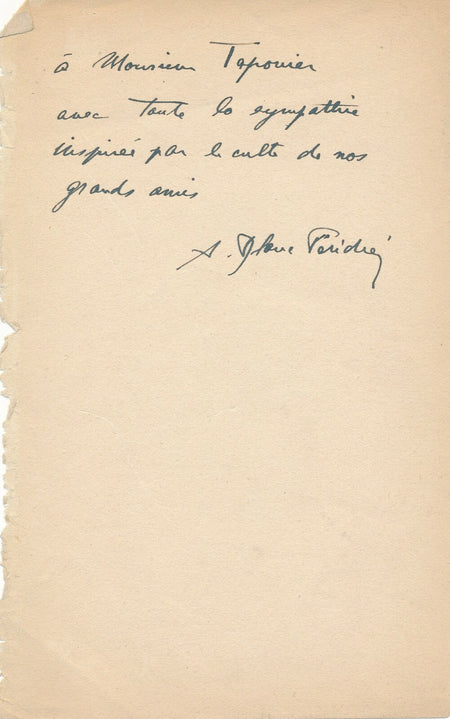 à Monsieur Taponier
avec toute la sympathie
inspirée par le culte de nos
grands amis
A. Blanc Péridié